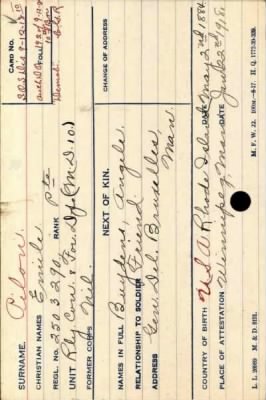 CARD NO.
SURNAME. Pilon.
CHRISTIAN NAMES Emile
REGL. NO. 2503290. RANK Pte
UNIT Rly Con. & For. Dep (M.D.10)
FORMER CORPS Nil.
NEXT OF KIN.
CHANGE OF ADDRESS
NAMES IN FULL Buydens, Angele.
RELATIONSHIP TO SOLDIER Friend
ADDRESS Gen. Del. Bruxelles,
Man.
COUNTRY OF BIRTH U.S.A. Rhode Island DATE May 2nd 1884
PLACE OF ATTESTATION Winnipeg, Man. DATE 22nd 1918.
L. L. M. & D.
M. F. W. 22.
H. Q.